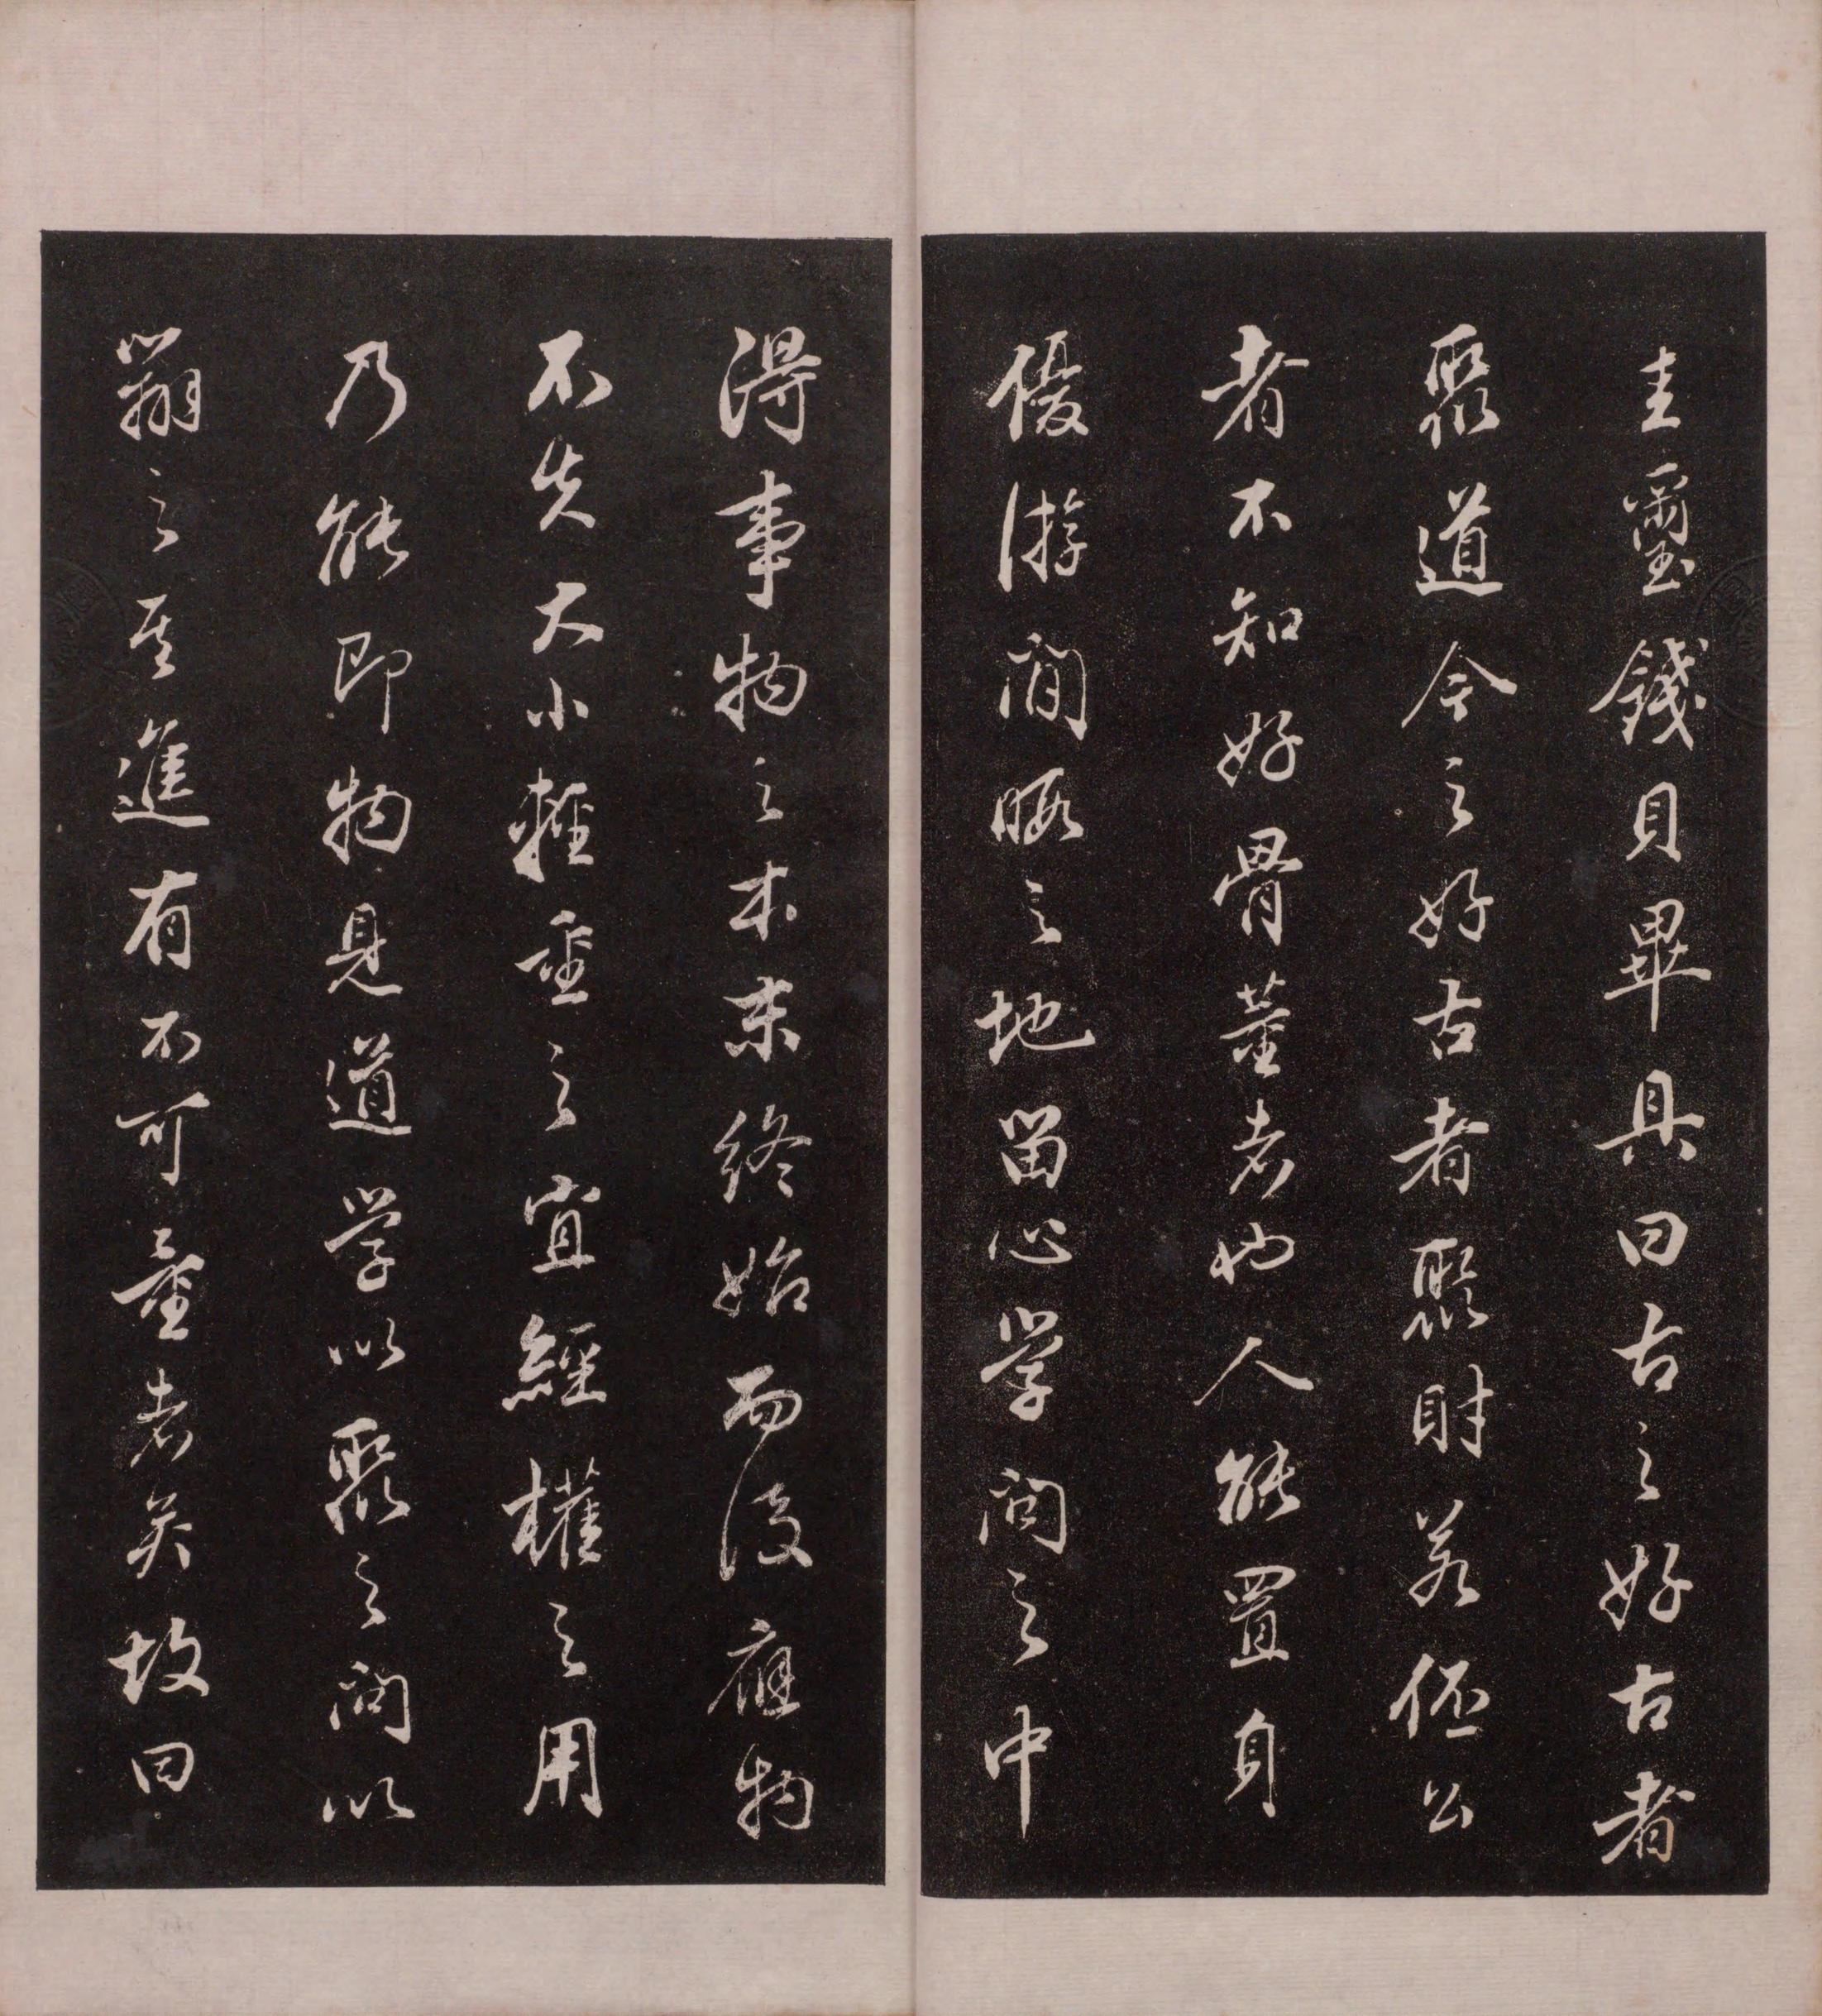 圭璽錢貝畢具曰古之好古者
聚道今之好古者聚財若伾公
者不知好骨董者也人能置身
優游閒暇之地留心學問之中
得事物之本末終始而後應物
不失大小輕重之宜經權之用
乃能即物見道學以聚之問以
辨之其進有不可量者矣故曰